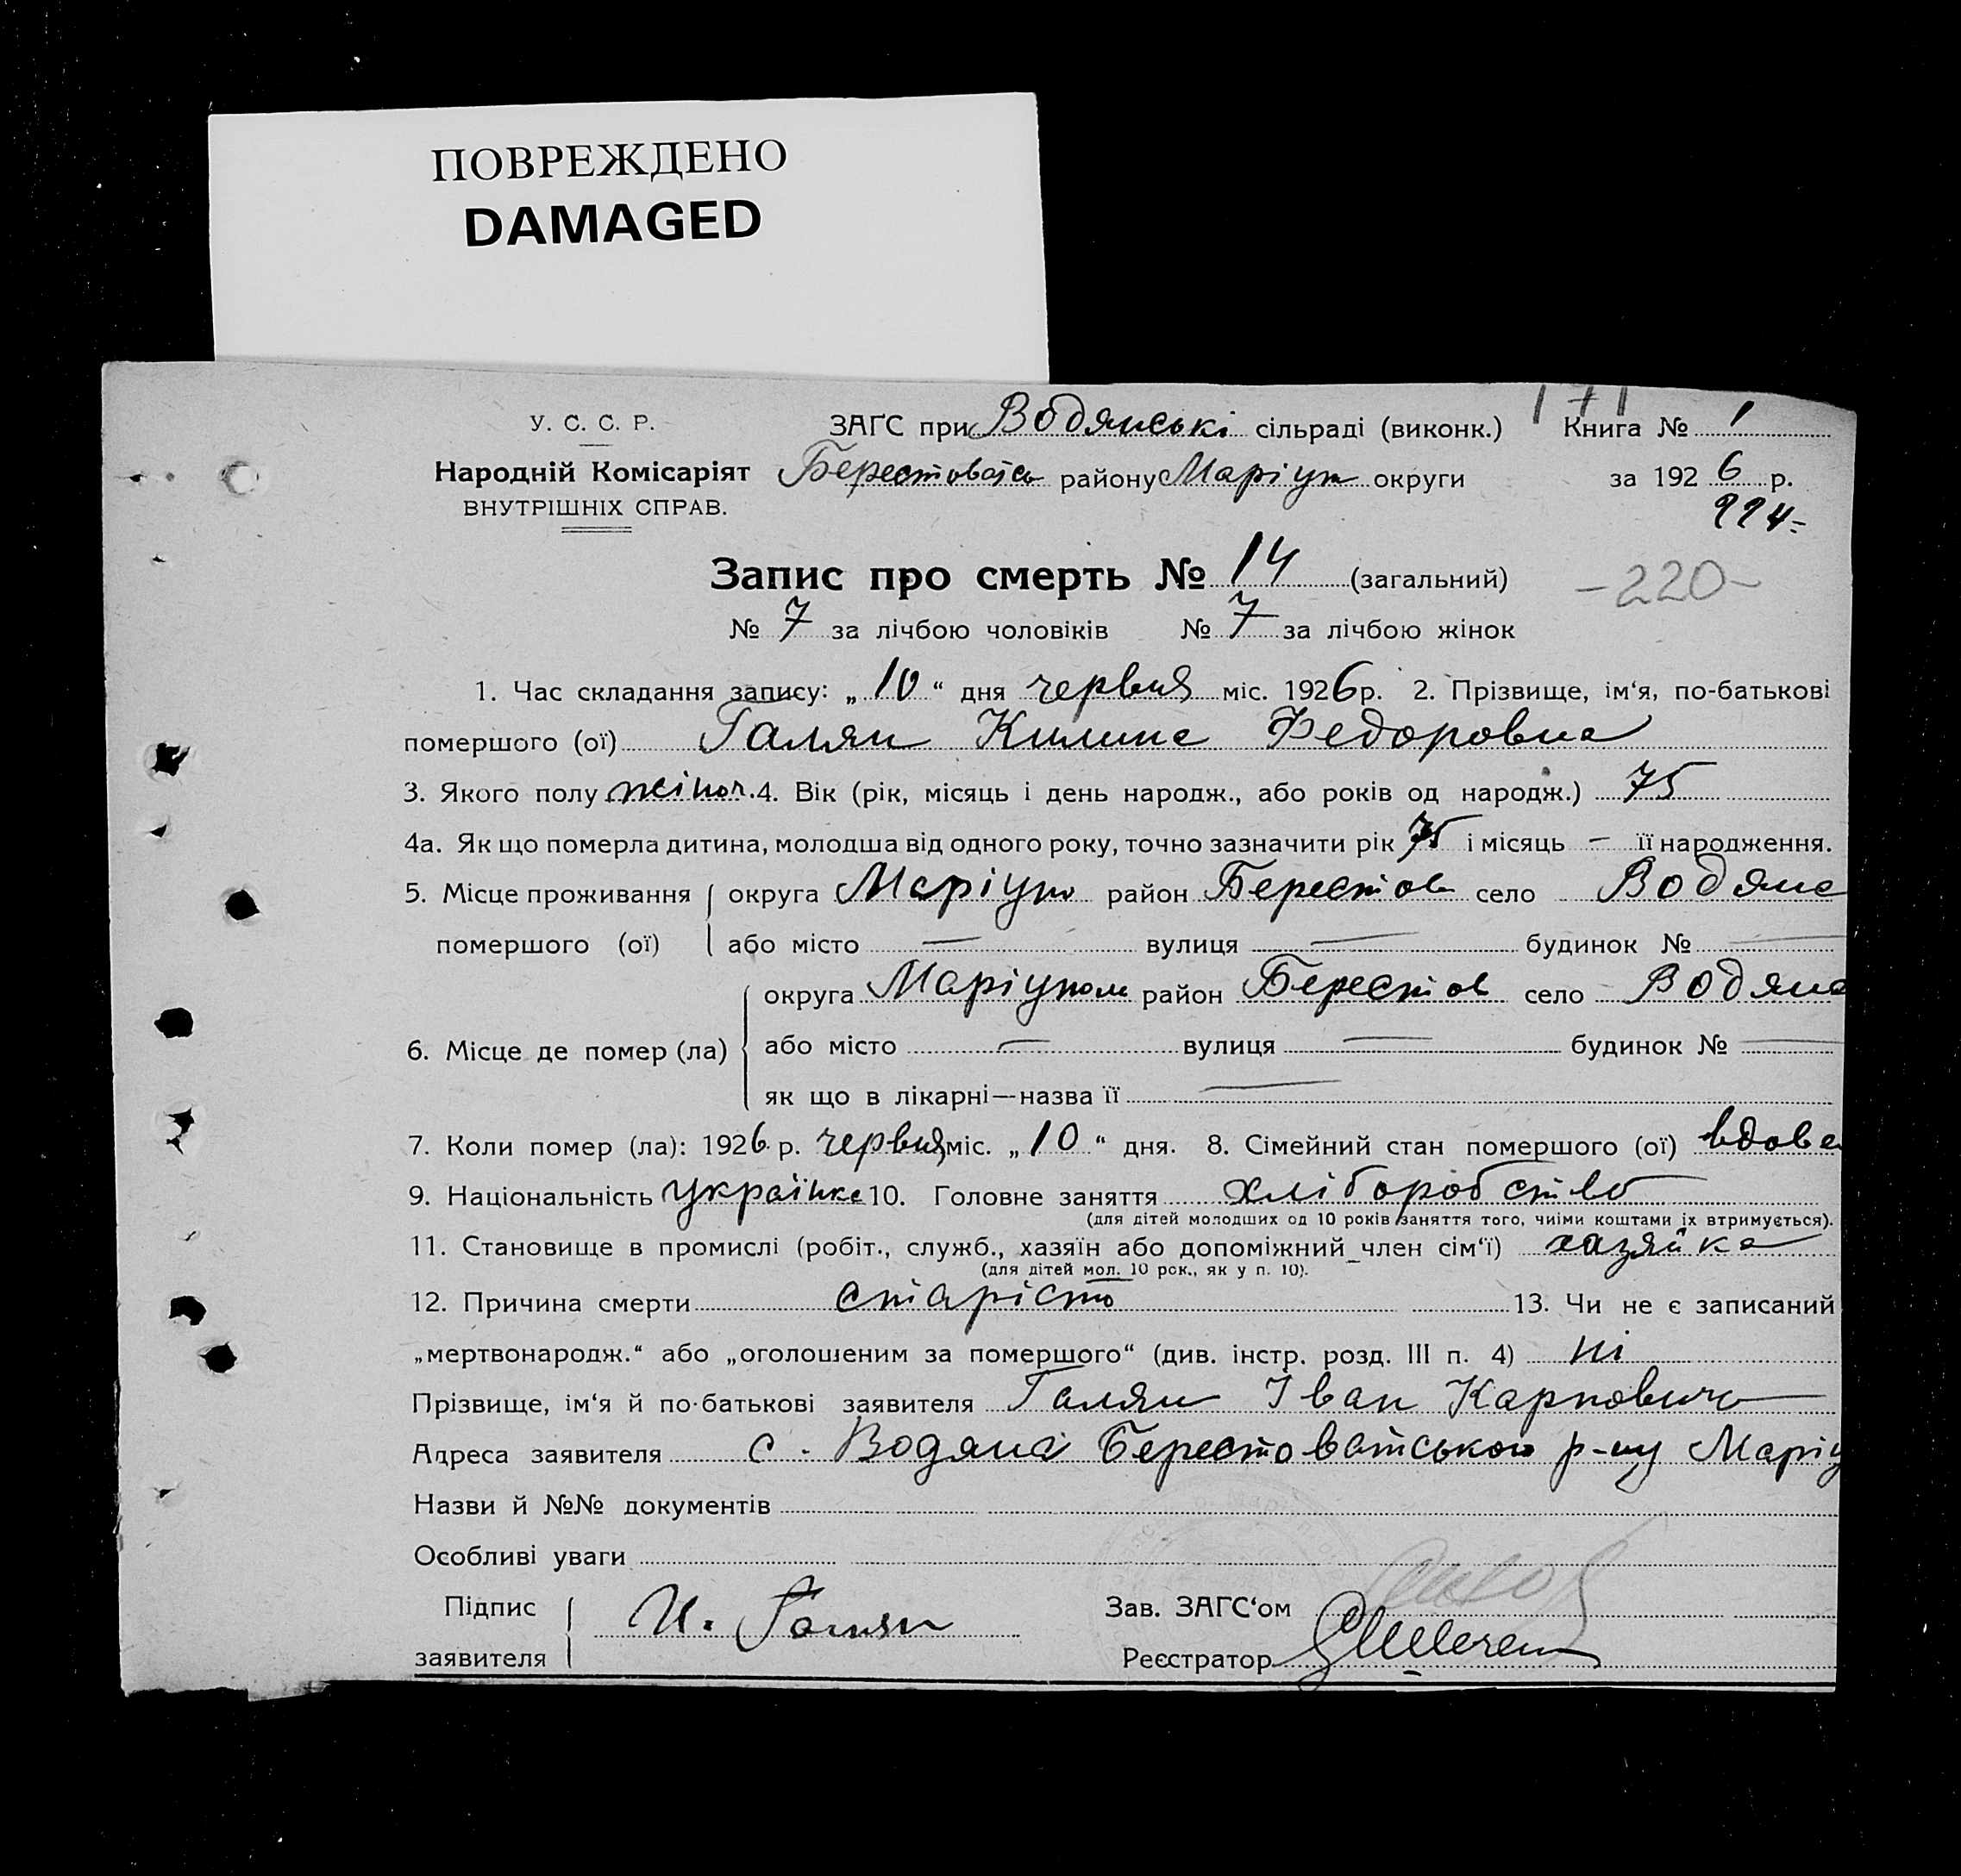 ПОВРЕЖДЕНО
DAMAGED
171
У. С. С. Р. ЗАГС при Водянські сільраді (виконк.) Книга № 1
Народній Комісаріят Берестоватсь району Маріуп округи за 1926 р.
ВНУТРІШНІХ СПРАВ. 224-
Запис про смерть № 14 (загальний) -220-
№ 7 за лічбою чоловіків № 7 за лічбою жінок
1. Час складання запису: „10“ дня червня міс. 1926 р. 2. Прізвище, ім‘я, по-батькові
помершого (ої) Галян Килина Федоровна
3. Якого полу жіноч. 4. Вік (рік, місяць і день народж., або років од народж.) 75
4а. Як що померла дитина, молодша від одного року, точно зазначити рік 75 і місяць — її народження.
5. Місце проживання округа Маріуп район Берестов село Водяна
помершого (ої) або місто — вулиця — будинок № —
округа Маріупол район Берестов село Водяна
6. Місце де помер (ла) або місто — вулиця — будинок № —
як що в лікарні—назва її —
7. Коли помер (ла): 1926 р. червня міс. „10“ дня. 8. Сімейний стан помершого (ої) вдова
9. Національність українка 10. Головне заняття хліборобство
(для дітей молодших од 10 років заняття того, чиїми коштами їх втримується).
11. Становище в промислі (робіт., служб., хазяїн або допоміжний член сім‘ї) хазяйка
(для дітей мол. 10 рок., як у п. 10).
12. Причина смерти старість 13. Чи не є записаний
„мертвонародж.“ або „оголошеним за помершого“ (див. інстр. розд. III п. 4) ні
Прізвище, ім‘я й по-батькові заявителя Галян Іван Карпович
Адреса заявителя с. Водяна Берестоватського р-ну Маріу
Назви й №№ документів
Особливі уваги
Підпис И. Галян Зав. ЗАГС‘ом
заявителя Реєстратор